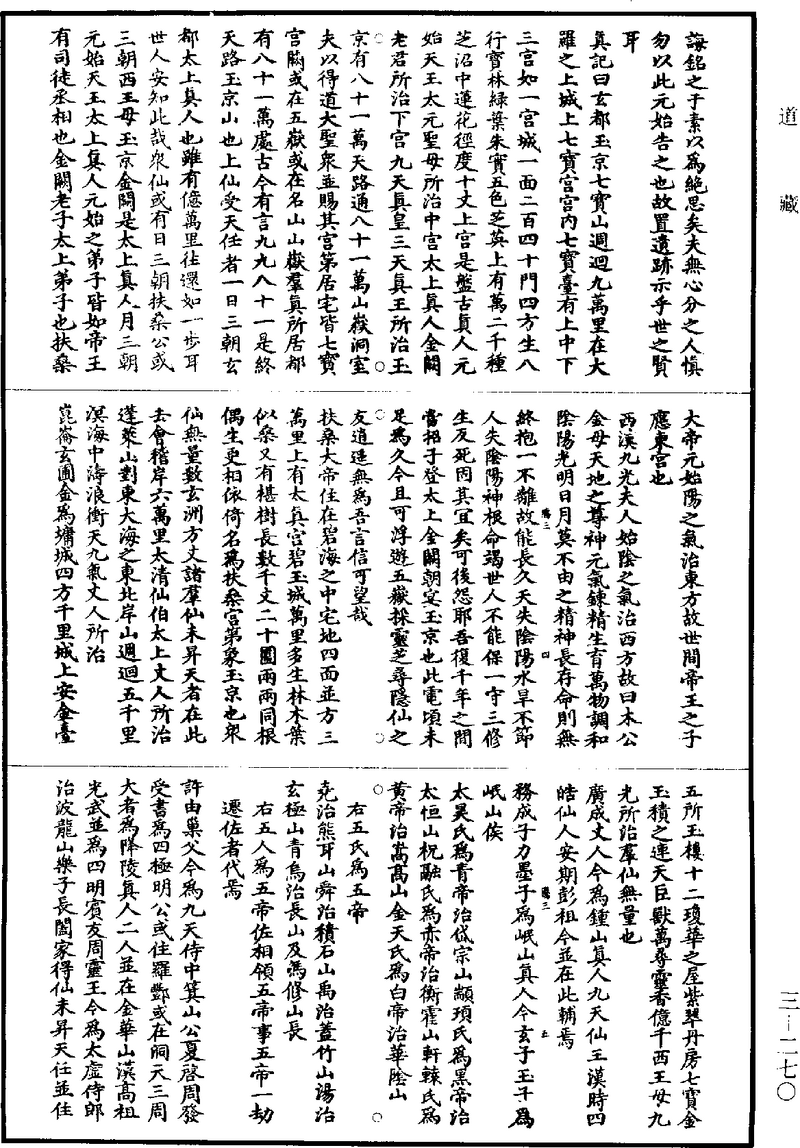 道藏
誨銘之于素以爲絕思矣夫無心分之人愼
勿以此元始告之也故置遺跡示乎世之賢
耳
眞記曰玄都玉京七寶山週迴九萬里在大
羅之上城上七寶宮宮內七寶臺有上中下
三宮如一宮城一面二百四十門四方生八
行寶林綠葉朱實五色芝英上有萬二千種
芝沼中蓮花徑度十丈上宮是盤古眞人元
始天王太元聖母所治中宮太上眞人金闕
老君所治下宮九天眞皇三天眞王所治玉
京有八十一萬天路通八十一萬山嶽洞室
夫以得道大聖衆並賜其宮第居宅皆七寶
宮闕或在五嶽或在名山山嶽羣眞所居都
有八十一萬處古今有言九九八十一是終
天路玉京山也上仙受天任者一日三朝玄
都太上眞人也雖有億萬里往還如一步耳
世人安知此哉衆仙或有日三朝扶桑公或
三朝西王母玉京金闕是太上眞人月三朝
元始天王太上眞人元始之弟子皆如帝王
有司徒丞相也金闕老子太上弟子也扶桑
大帝元始陽之氣治東方故世間帝王之子
應東宮也
西漢九光夫人始陰之氣治西方故曰木公
金母天地之尊神元氣鍊精生育萬物調和
陰陽光明日月莫不由之精神長存命則無
終抱一不離故能長久天失陰陽水旱不節
人失陰陽神根命竭世人不能保一守三修
生反死固其宜矣可後怨耶吾復千年之間
當招子登太上金闕朝宴玉京也此電頃未
足爲久今且可浮遊五嶽採靈芝尋隱仙之
友逍遥無爲吾言信可望哉
扶桑大帝住在碧海之中宅地四面並方三
萬里上有太眞宮碧玉城萬里多生林木葉
似桑又有椹樹長數千丈二十圍兩兩同根
偶生更相依倚名爲扶桑宮第象玉京也衆
仙無量數玄洲方丈諸羣仙未昇天者在此
去會稽岸六萬里太清仙伯太上丈人所治
蓬萊山對東大海之東北岸山週迴五千里
溟海中濤浪衝天九氣丈人所治
崑崙玄圃金爲墉城四方千里城上安金臺
五所玉樓十二瓊華之屋紫翠丹房七寶金
玉積之連天巨獸萬尋靈香億千西王母九
光所治羣仙無量也
廣成丈人今爲鍾山眞人九天仙王漢時四
皓仙人安期彭祖今並在此輔焉
務成子力墨子爲岷山眞人今玄子玉子爲
岷山侯
太昊氏爲青帝治岱宗山顓頊氏爲黑帝治
太恒山祝融氏爲赤帝治衡霍山軒轅氏爲
黃帝治嵩高山金天氏爲白帝治華陰山
右五氏爲五帝
堯治熊耳山舜治積石山禹治蓋竹山湯治
玄極山青烏治長山及馮修山長
右五人爲五帝佐相領五帝事五帝一劫
遷佐者代焉
許由巢父今爲九天侍中箕山公夏啓周發
受書爲四極明公或住羅酆或在洞天三周
大者爲降陵眞人二人並在金華山漢高祖
光武並爲四明賓友周靈王今爲太虛侍郎
治波龍山樂子長闔家得仙未昇天任並住
三一二七〇